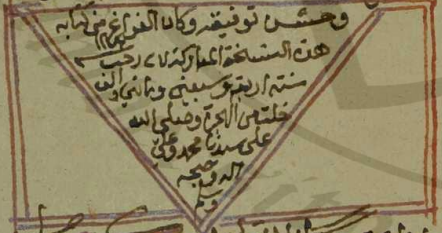 وحسن توفيقه وكان الفراغ من كتابه
هذه النسخة المباركة رجب سنة
سنة اربعة وسبعين ومائتين والف
خلت من الهجرة وصلى الله
على سيدنا محمد وعلى
اله وصحبه
وسلم